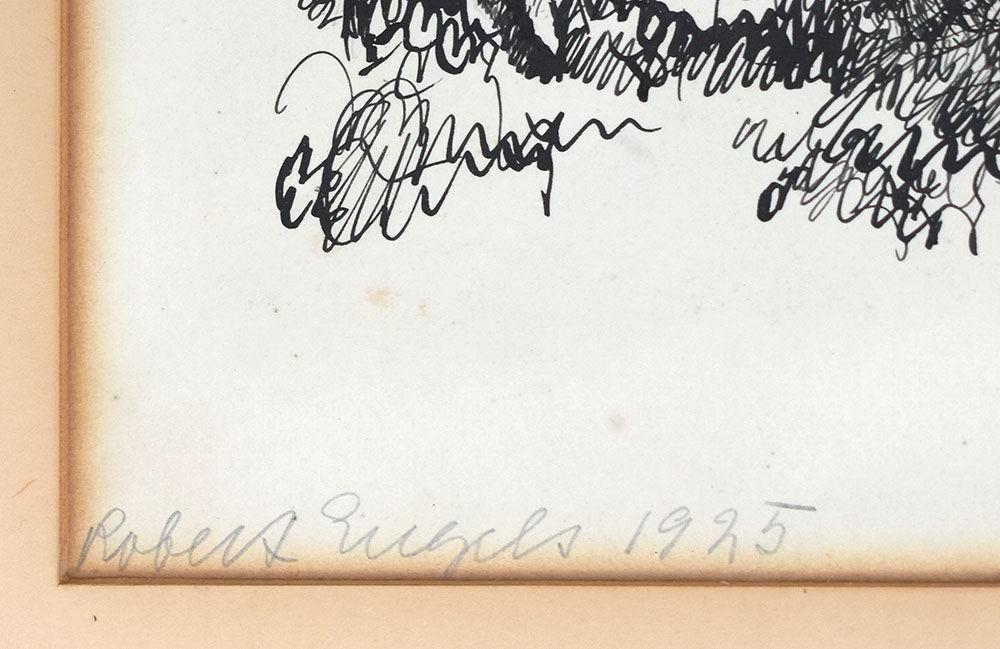 Robert Engels 1925